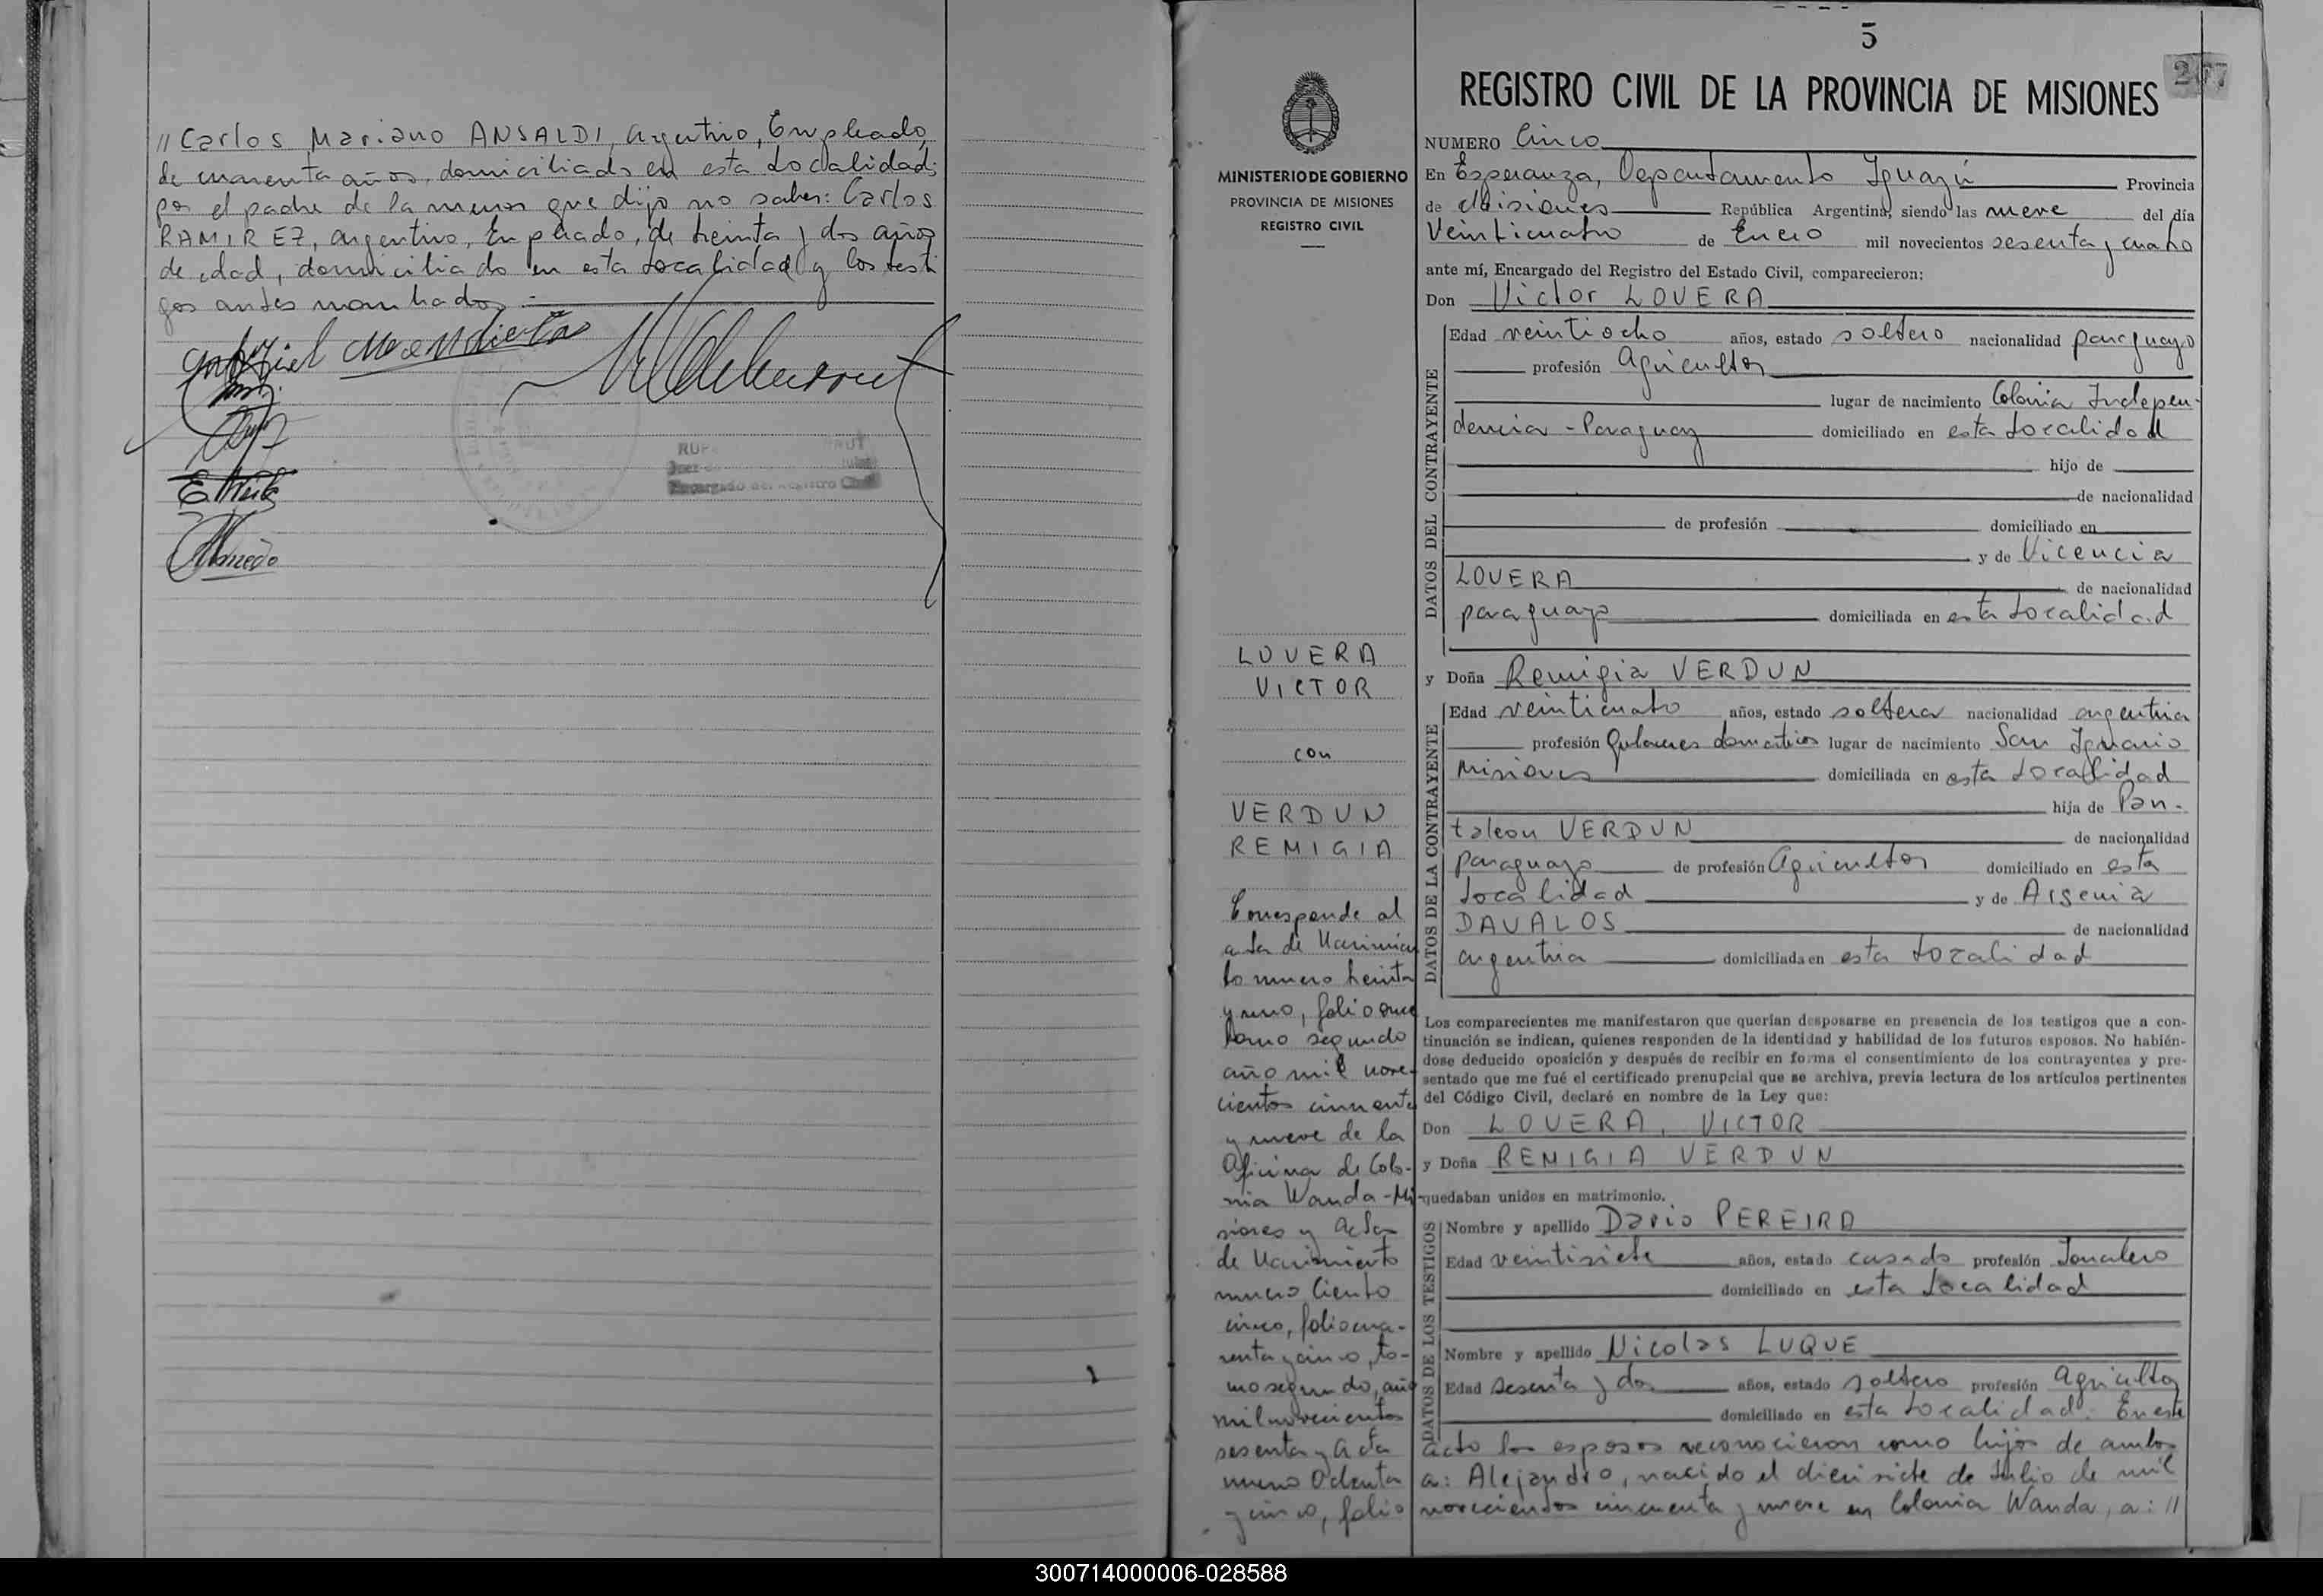 // Carlos Mariano ANSALDI, argentino, Empleado,
de cuarenta años, domiciliado en esta Localidad;
por el padre de la menor que dijo no saber: Carlos
RAMIREZ, argentino, Empleado, de treinta y dos años
de edad, domiciliado en esta Localidad y los testi
gos antes nombrados.-
Gabriel Mendieta
Encargado del Registro Civil
5
207
REGISTRO CIVIL DE LA PROVINCIA DE MISIONES
MINISTERIO DE GOBIERNO
PROVINCIA DE MISIONES
REGISTRO CIVIL
NUMERO Cinco
En Esperanza, Departamento Iguazú Provincia
de Misiones República Argentina, siendo las nueve del día
Veinticuatro de Enero mil novecientos sesenta y cuatro
ante mí, Encargado del Registro del Estado Civil, comparecieron:
Don Victor LOVERA
DATOS DEL CONTRAYENTE
Edad veintiocho años, estado soltero nacionalidad paraguayo
profesión Agricultor
lugar de nacimiento Colonia Indepen-
dencia - Paraguay domiciliado en esta Localidad
hijo de
de nacionalidad
de profesión domiciliado en
y de Vicencia
LOVERA de nacionalidad
paraguaya domiciliada en esta Localidad
y Doña Remigia VERDUN
DATOS DE LA CONTRAYENTE
Edad veinticuatro años, estado soltera nacionalidad argentina
profesión Quehaceres domesticos lugar de nacimiento San Ignacio
Misiones domiciliada en esta Localidad
hija de Pan-
taleon VERDUN de nacionalidad
paraguayo de profesión Agricultor domiciliado en esta
Localidad y de Arsenia
DAVALOS de nacionalidad
argentina domiciliada en esta Localidad
Los comparecientes me manifestaron que querían desposarse en presencia de los testigos que a con-
tinuación se indican, quienes responden de la identidad y habilidad de los futuros esposos. No habién-
dose deducido oposición y después de recibir en forma el consentimiento de los contrayentes y pre-
sentado que me fué el certificado prenupcial que se archiva, previa lectura de los artículos pertinentes
del Código Civil, declaré en nombre de la Ley que:
Don LOVERA, VICTOR
y Doña REMIGIA VERDUN
quedaban unidos en matrimonio.
DATOS DE LOS TESTIGOS
Nombre y apellido Dario PEREIRA
Edad veintisiete años, estado casado profesión Jornalero
domiciliado en esta Localidad
Nombre y apellido Nicolas LUQUE
Edad sesenta y dos años, estado soltero profesión Agricultor
domiciliado en esta Localidad. En este
acto los esposos reconocieron como hijos de ambos
a: Alejandro, nacido el diecisiete de Julio de mil
novecientos cincuenta y nueve en Colonia Wanda, a: //
LOVERA
VICTOR
con
VERDUN
REMIGIA
Corresponde al
acta de Nacimien
to numero treinta
y uno, folio once
tomo segundo
año mil nove-
cientos cincuenta
y nueve de la
Oficina de Colo-
nia Wanda - Mi-
siones y Acta
de Nacimiento
numero Ciento
cinco, folio cua-
renta y cinco, to-
mo segundo, año
mil novecientos
sesenta y Acta
numero Ochenta
y cinco, folio
300714000006-028588